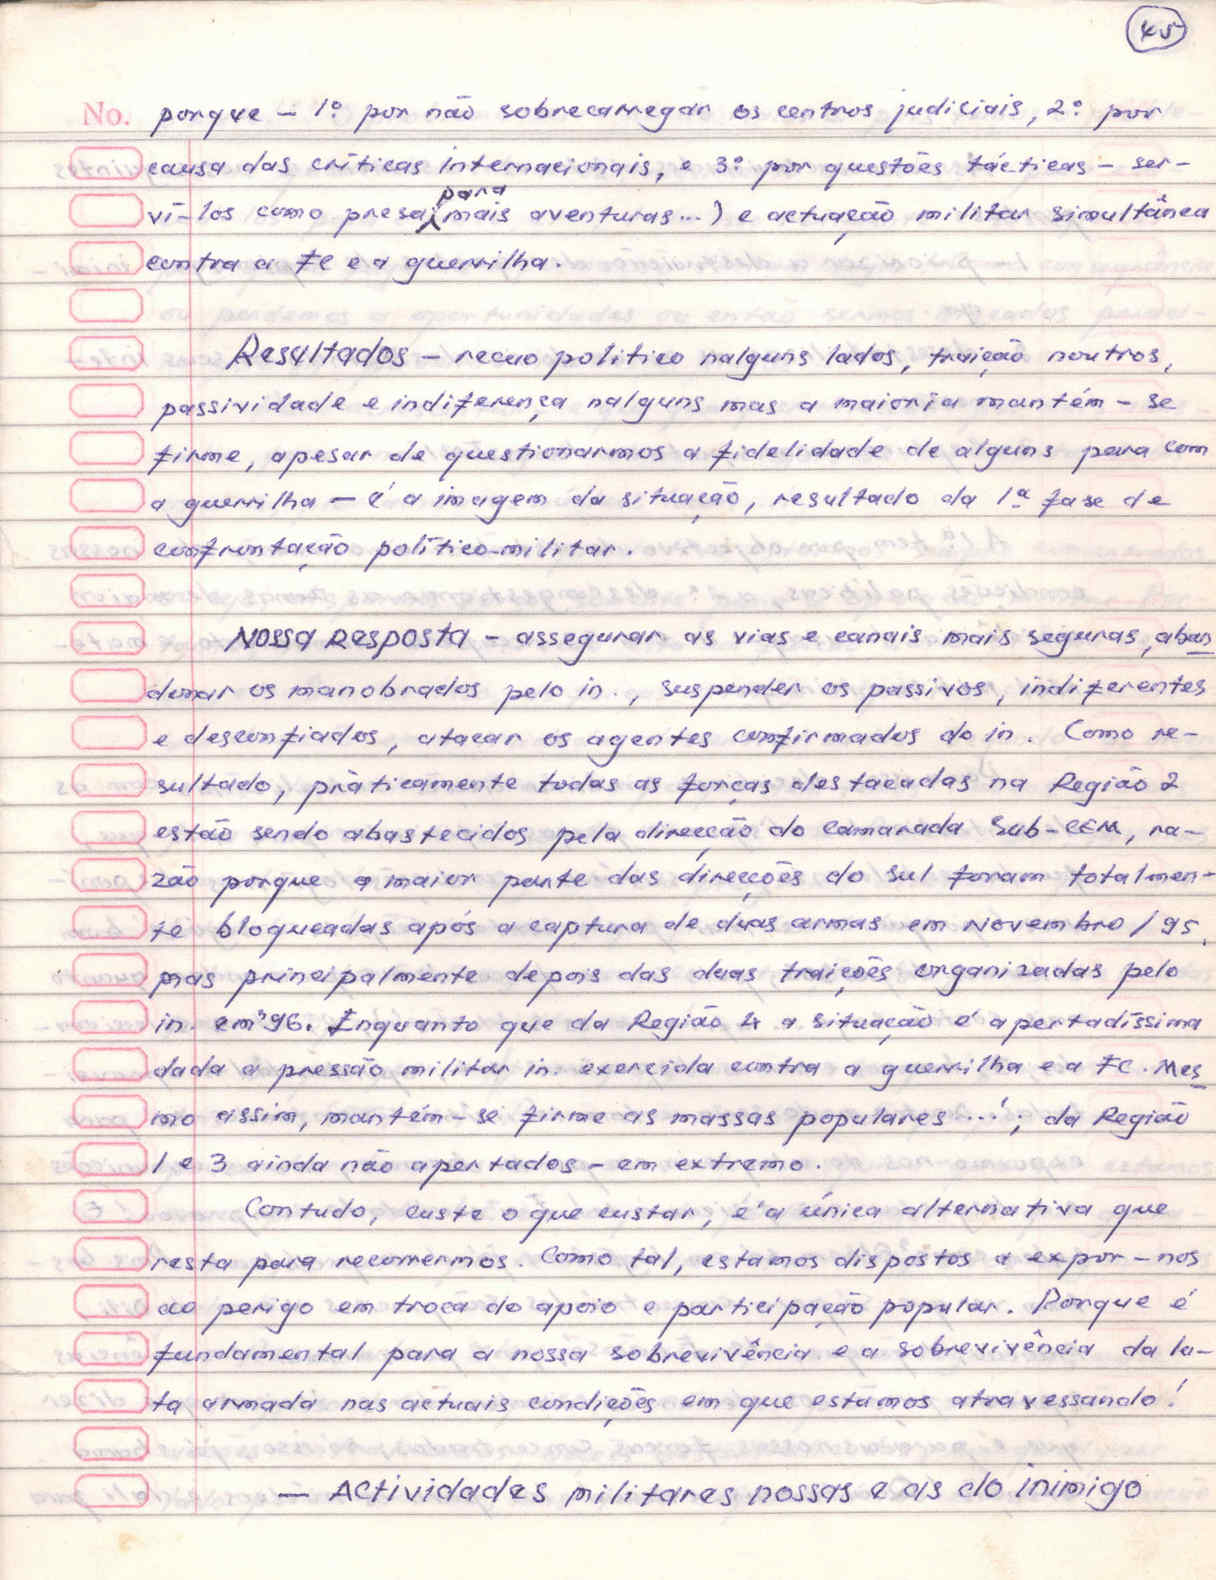 45
No. porque - 1º por não sobrecarregar os centros judiciais, 2º por
causa das críticas internacionais, e 3º por questões tácticas - ser-
para
ví-los como presa mais aventuras...) e actuação militar simultânea
contra a FC e a guerrilha.
Resultados - recuo político nalguns lados, traição noutros,
passividade e indiferença nalguns mas a maioria mantém-se
firme, apesar de questionarmos a fidelidade de alguns para com
a guerrilha - é a imagem da situação, resultado da 1ª fase de
confrontação político-militar.
Nossa Resposta - assegurar as vias e canais mais seguras, aban
donar os manobrados pelo in., suspender os passivos, indiferentes
e desconfiados, atacar os agentes confirmados do in. Como re-
sultado, pràticamente todas as forças destacadas na Região 2
estão sendo abastecidos pela direcção do camarada Sub-CEM, ra-
zão porque a maior parte das direcções do sul foram totalmen-
te bloqueadas após a captura de duas armas em Novembro/95,
mas principalmente depois das duas traições organizadas pelo
in. em 96. Enquanto que da Região 4 a situação é apertadíssima
dada a pressão militar in. exercida contra a guerrilha e a FC. Mes
mo assim, mantém-se firme as massas populares ...!; da Região
1 e 3 ainda não apertados - em extremo.
Contudo, custe o que custar, é a única alternativa que
resta para recorrermos. Como tal, estamos dispostos a expor-nos
ao perigo em troca do apoio e participação popular. Porque é
fundamental para a nossa sobrevivência e a sobrevivência da lu-
ta armada nas actuais condições em que estamos atravessando!
- Actividades militares nossas e as do inimigo